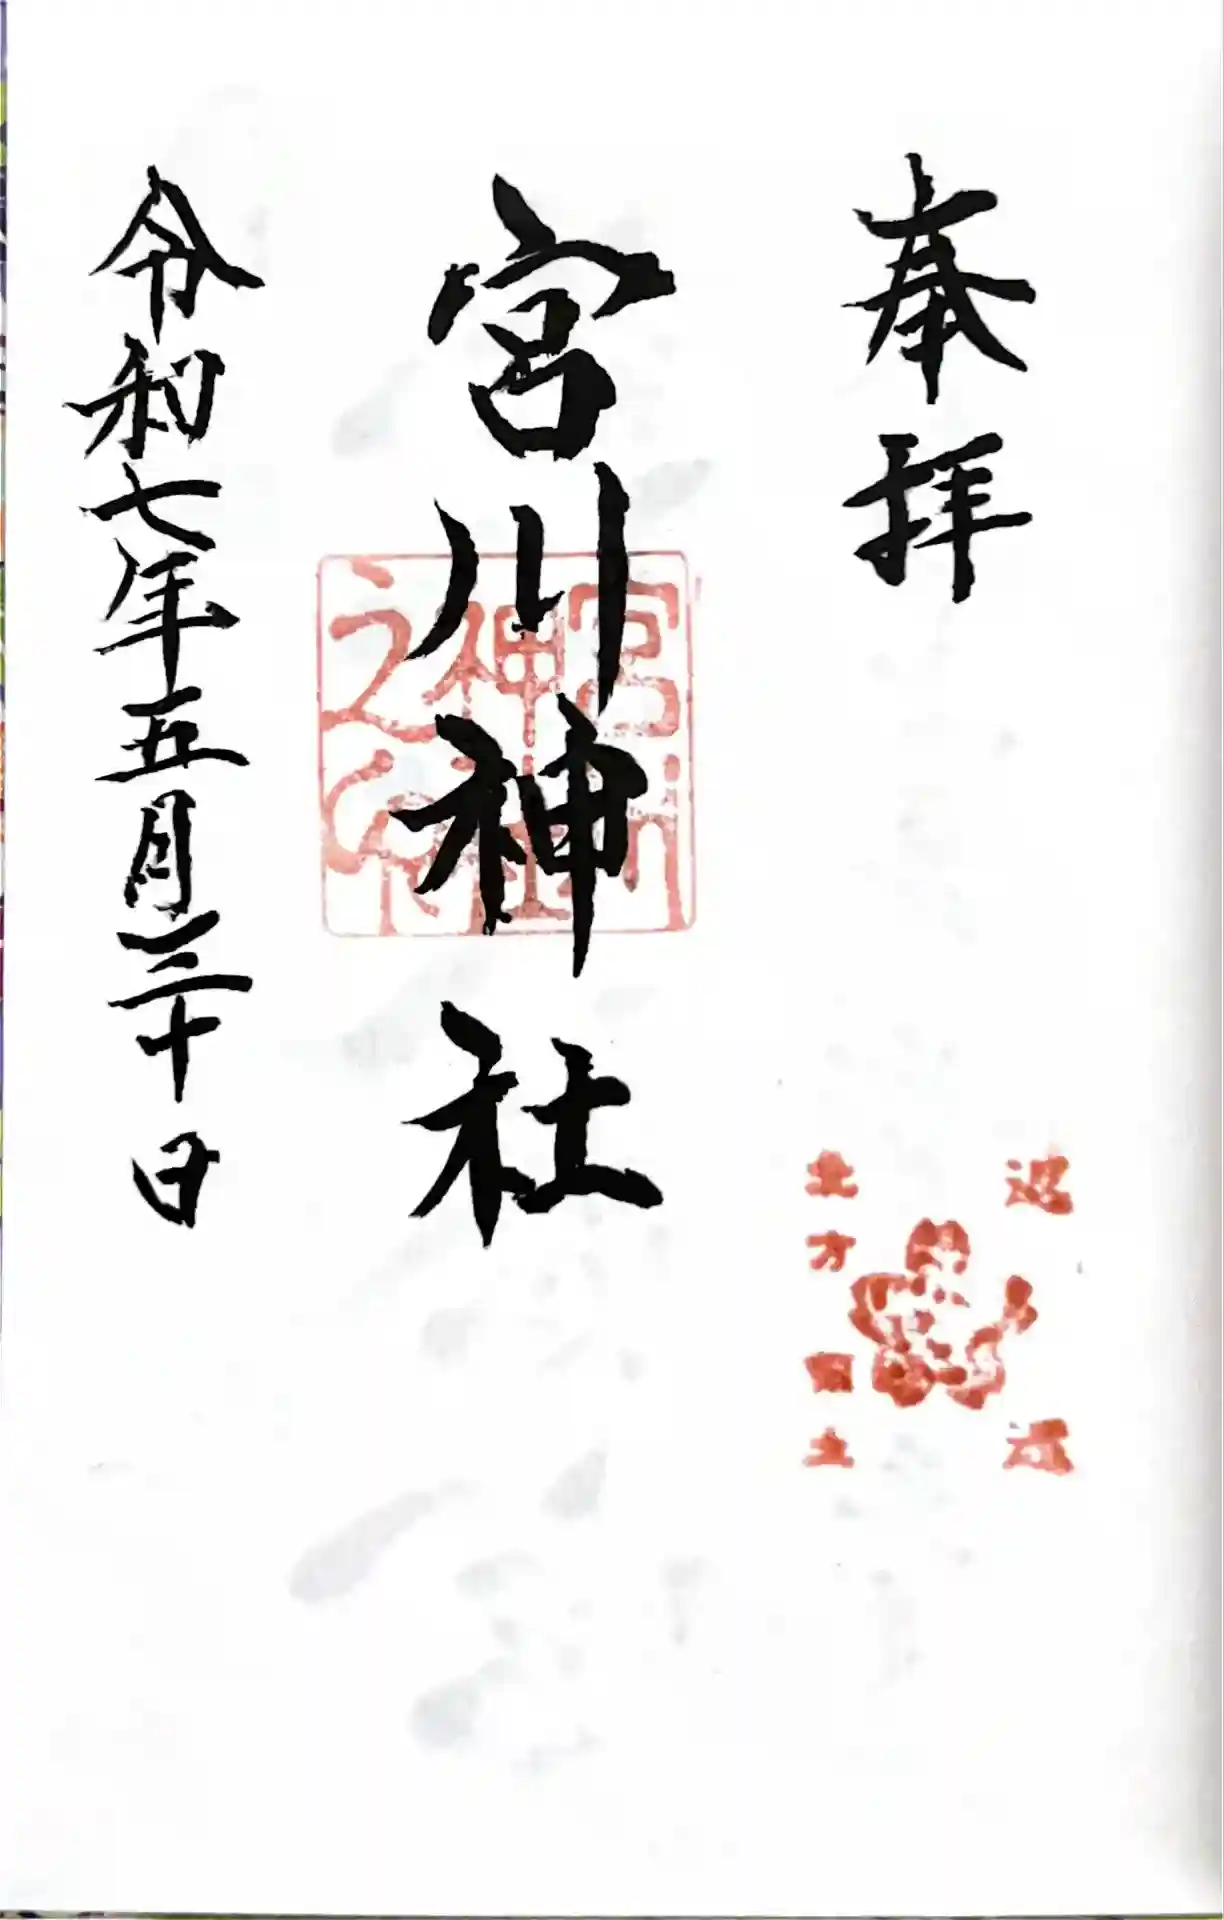 奉拝
宮川神社
宮川
神社
之印
令和七年五月三十日